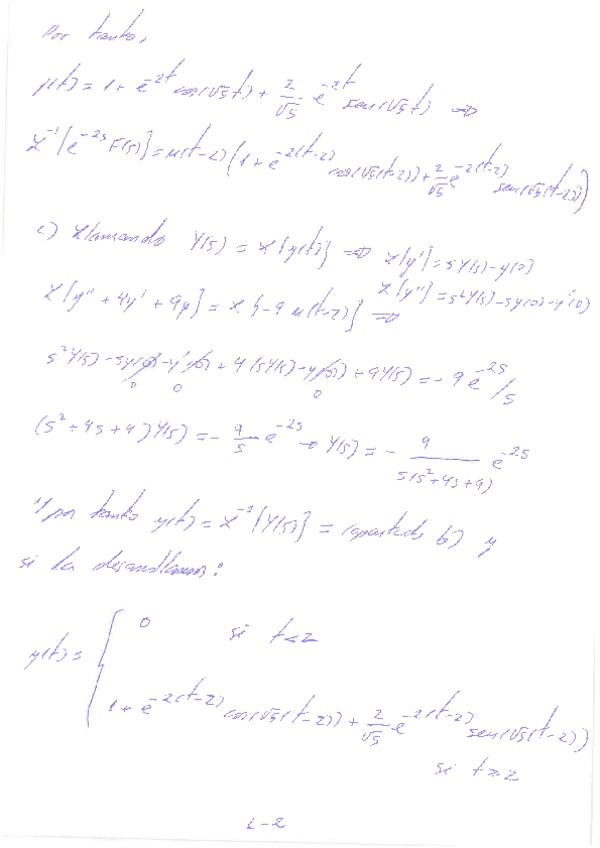 Por tanto,
f(t) = 1 + e^{-2t} cos(√5t) + 2/√5 e^{-2t} sen(√5t) ⇒
L^{-1}{e^{-2s} F(s)} = u(t-2) (1 + e^{-2(t-2)} cos(√5(t-2)) + 2/√5 e^{-2(t-2)} sen(√5(t-2)))
c) Llamando Y(s) = L{y(t)} ⇒ L{y'} = sY(s) - y(0)
L{y''} = s²Y(s) - sy(0) - y'(0)
L{y'' + 4y' + 9y} = L{-9 u(t-2)} ⇒
s²Y(s) - sy(0) - y'(0) + 4(sY(s) - y(0)) + 9Y(s) = -9 e^{-2s}/s
0 0 0
(s² + 4s + 9) Y(s) = - 9/s e^{-2s} ⇒ Y(s) = - 9/(s(s² + 4s + 9)) e^{-2s}
Y por tanto y(t) = L^{-1}{Y(s)} = (apartado b) y
si la desarrollamos:
y(t) = { 0 si t<2
1 + e^{-2(t-2)} cos(√5(t-2)) + 2/√5 e^{-2(t-2)} sen(√5(t-2))
si t≥2
L-2